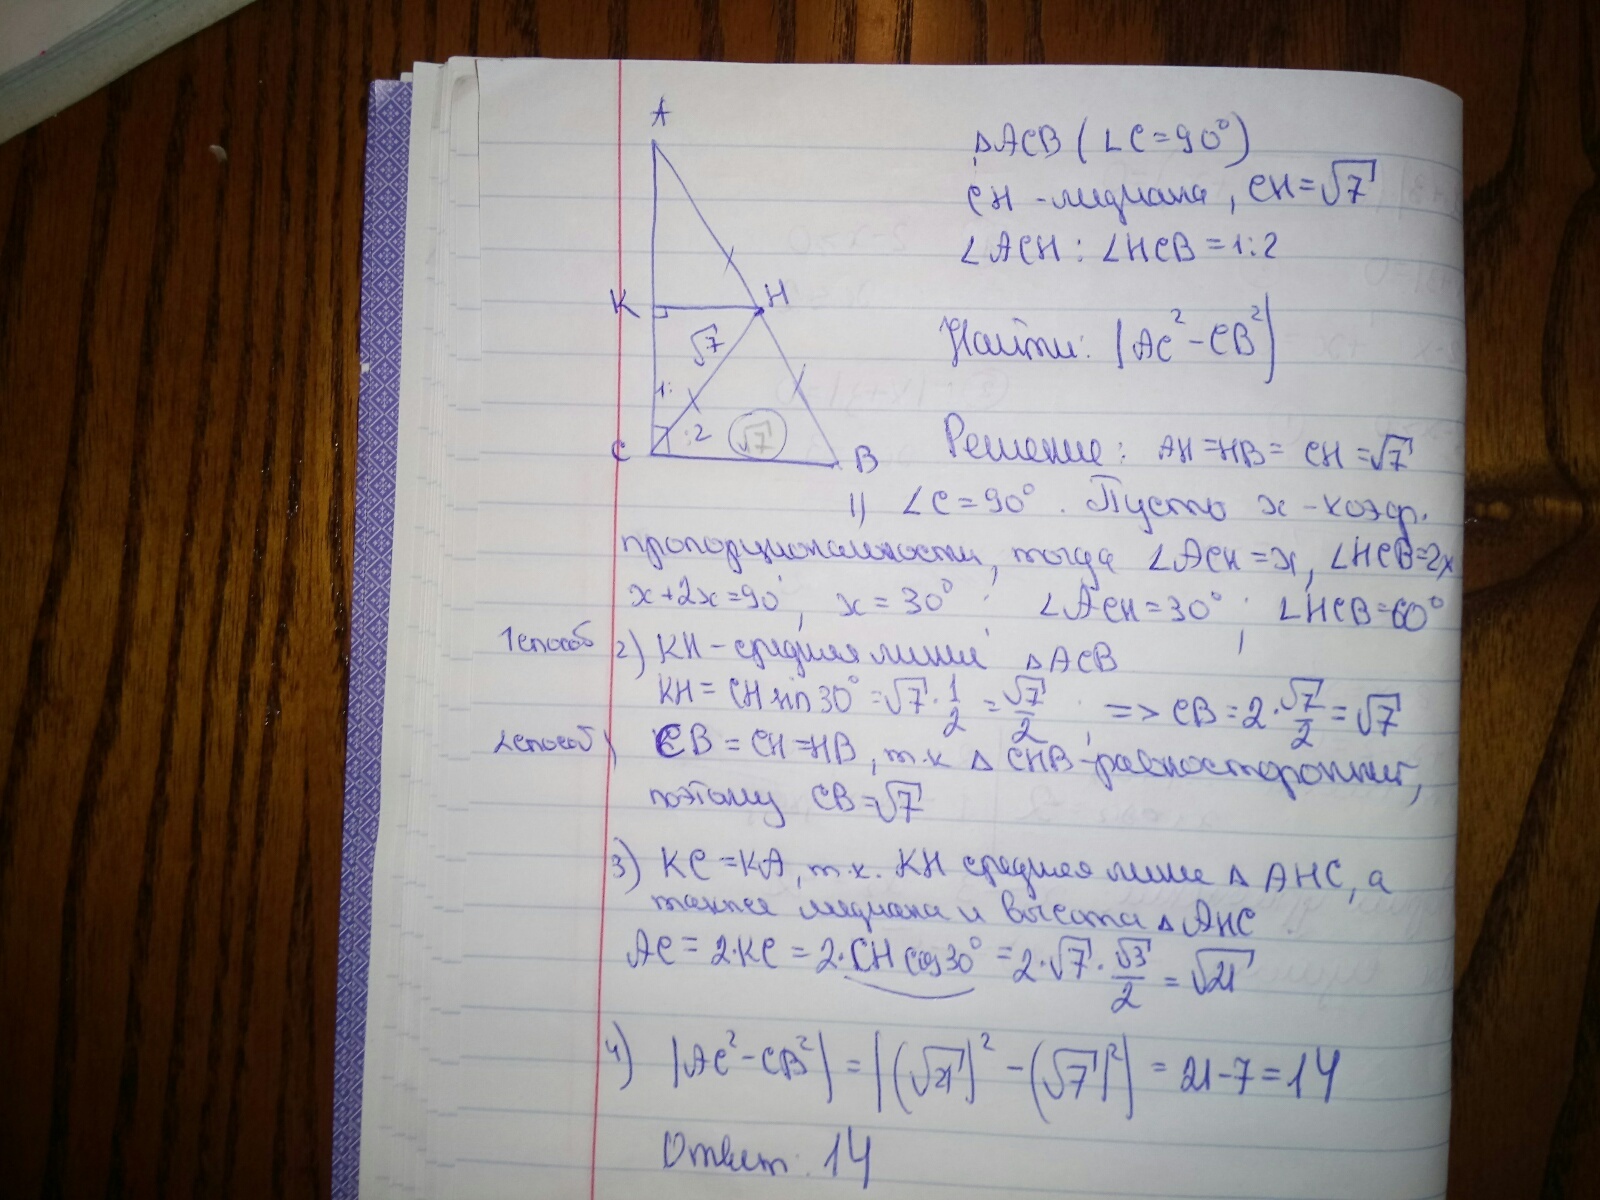 A
K
H
√7
1:
:2
√7
C
B
△ACB (∠C=90°)
CH - медиана, CH=√7
∠ACH : ∠HCB = 1:2
Найти: |AC² - CB²|
Решение: AH=HB= CH=√7
1) ∠C=90°. Пусть x - коэф.
пропорциональности, тогда ∠ACH=x, ∠HCB=2x
x+2x=90°, x=30°; ∠ACH=30°; ∠HCB=60°
1 способ 2) KH - средняя линия △ACB
KH = CH sin30° = √7 · 1/2 = √7/2; => CB = 2 · √7/2 = √7
2 способ) CB = CH = HB, т.к △ CHB - равносторонний,
поэтому CB=√7
3) KC=KA, т.к. KH средняя линия △ AHC, а
также медиана и высота △ AHC.
AC = 2·KC = 2·CH cos30° = 2·√7 · √3/2 = √21
4) |AC² - CB²| = |(√21)² - (√7)²| = 21-7=14
Ответ: 14